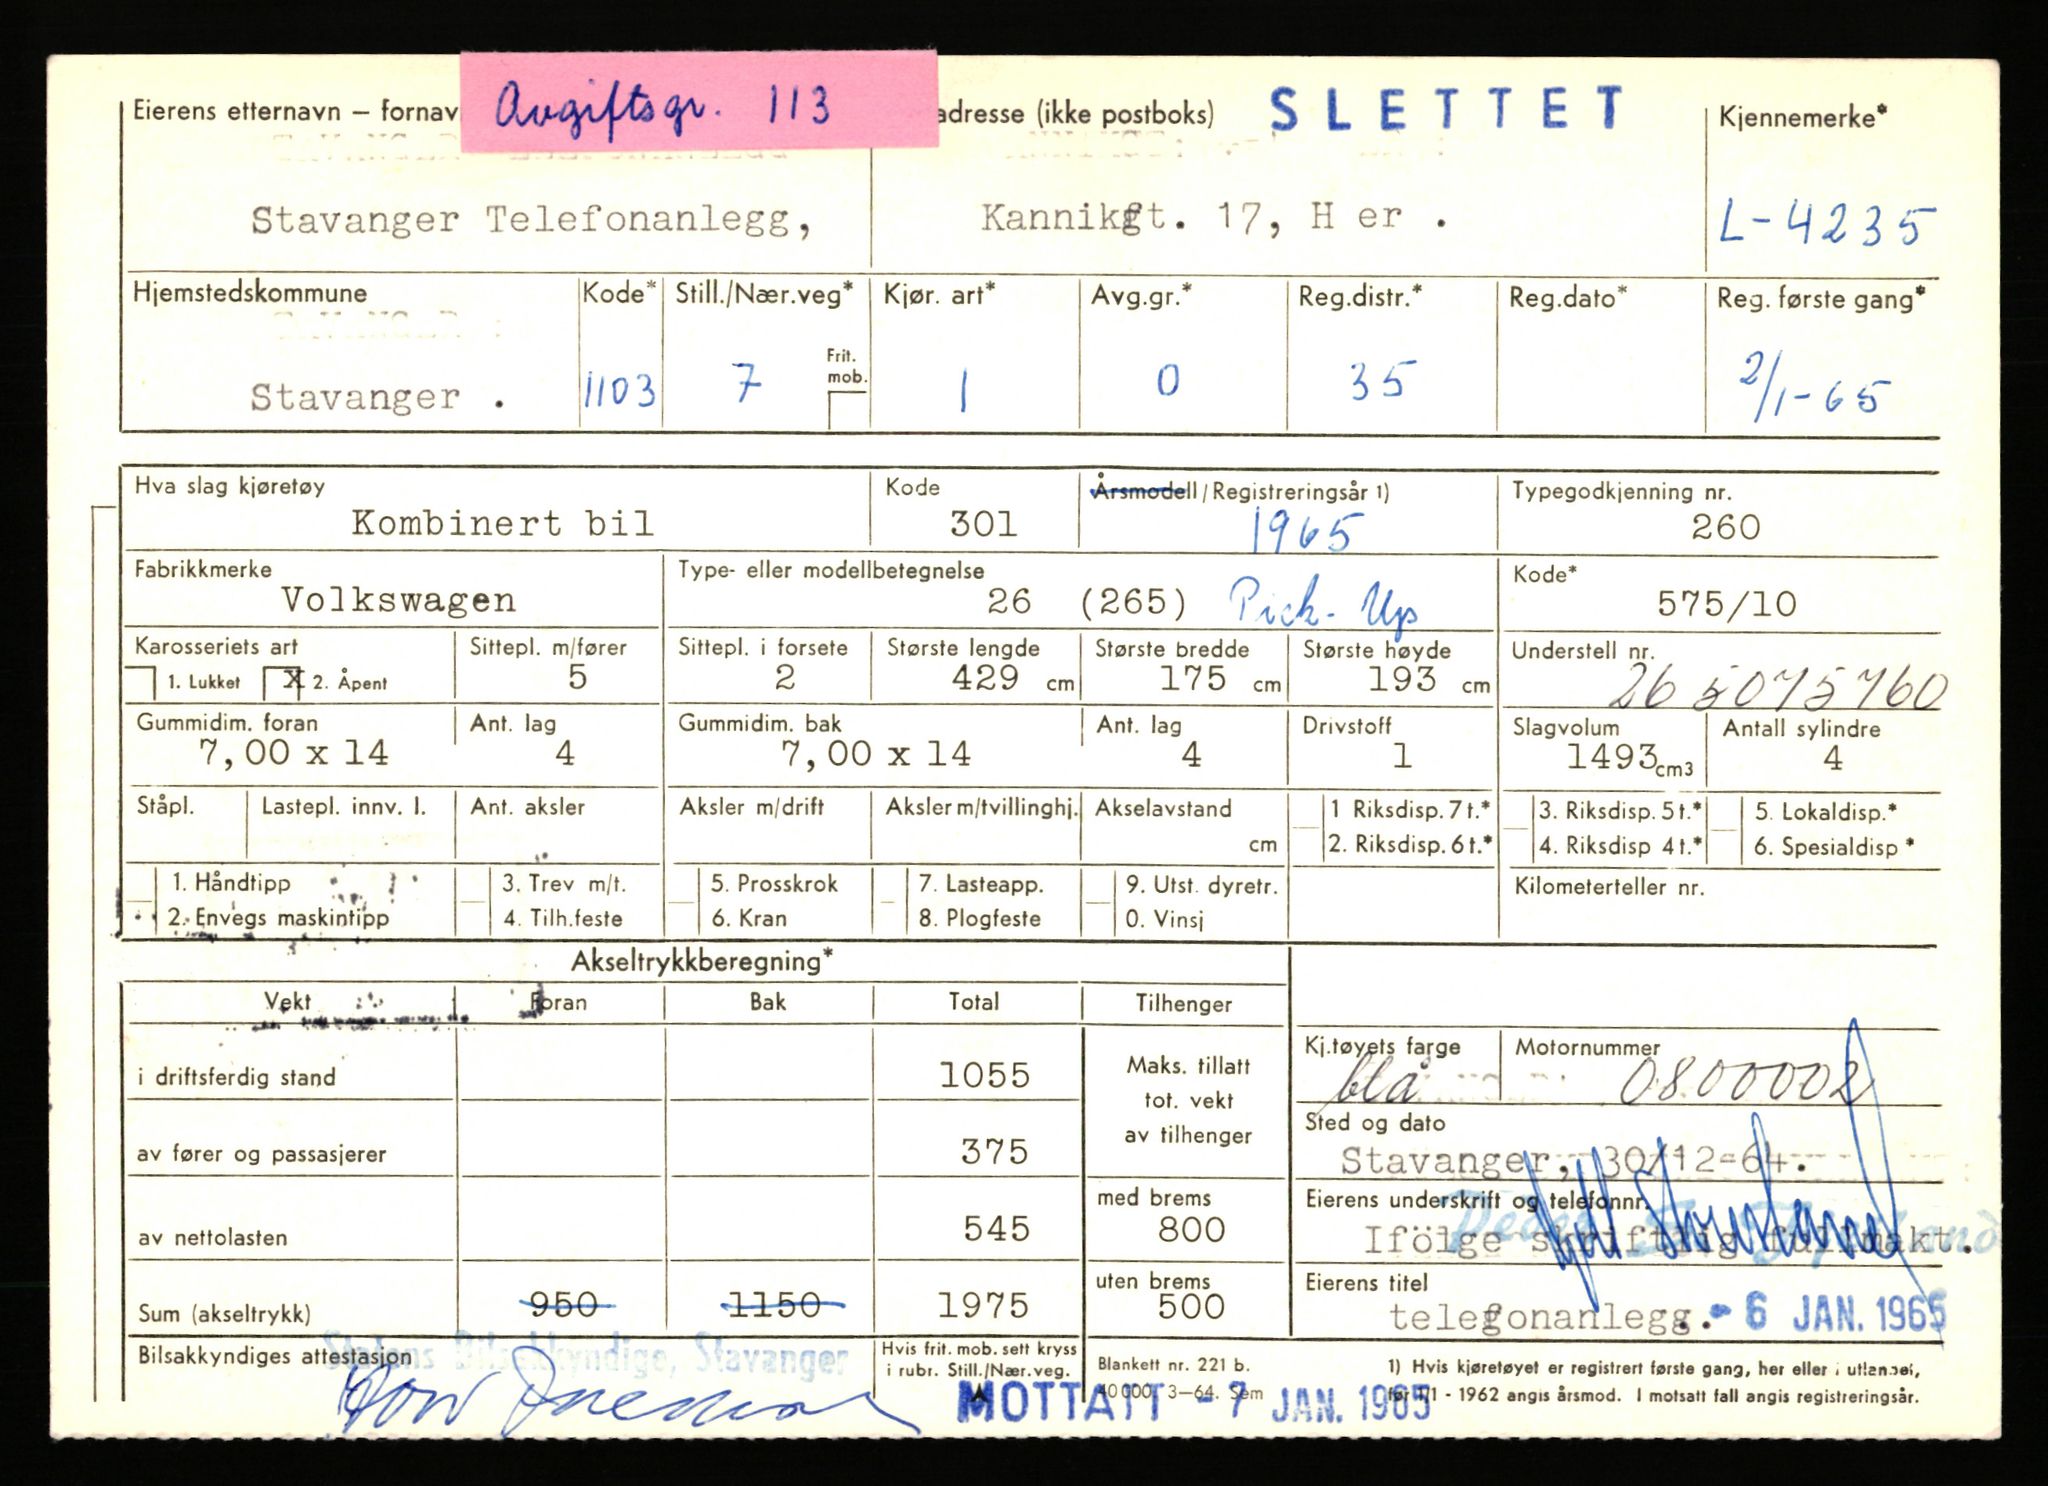 Avgiftsgr. 113
SLETTET
Eierens etternavn – fornav adresse (ikke postboks) Kjennemerke*
Stavanger Telefonanlegg, Kannikgt. 17, H er . L-4235
Hjemstedskommune Kode* Still./Nær.veg* Kjør. art* Avg.gr.* Reg.distr.* Reg.dato* Reg. første gang*
Frit. mob.
Stavanger . 1103 7 1 0 35 2/1-65
Hva slag kjøretøy Kode Årsmodell/Registreringsår 1) Typegodkjenning nr.
Kombinert bil 301 1965 260
Fabrikkmerke Type- eller modellbetegnelse Kode*
Volkswagen 26 (265) Pick-Up 575/10
Karosseriets art Sittepl. m/fører Sittepl. i forsete Største lengde Største bredde Største høyde Understell nr.
1. Lukket X 2. Åpent 5 2 429 cm 175 cm 193 cm 265075760
Gummidim. foran Ant. lag Gummidim. bak Ant. lag Drivstoff Slagvolum Antall sylindre
7,00 x 14 4 7,00 x 14 4 1 1493 cm3 4
Ståpl. Lastepl. innv. l. Ant. aksler Aksler m/drift Aksler m/tvillinghj. Akselavstand cm 1 Riksdisp. 7 t.* 3. Riksdisp. 5 t.* 5. Lokaldisp.*
2. Riksdisp. 6 t.* 4. Riksdisp 4 t.* 6. Spesialdisp *
1. Håndtipp 3. Trev m/t. 5. Prosskrok 7. Lasteapp. 9. Utst. dyretr. Kilometerteller nr.
2. Envegs maskintipp 4. Tilh.feste 6. Kran 8. Plogfeste 0. Vinsj
Akseltrykkberegning*
Vekt Foran Bak Total Tilhenger
i driftsferdig stand 1055 Maks. tillatt tot. vekt av tilhenger
Kj.tøyets farge Motornummer
blå 0800002
av fører og passasjerer 375
Sted og dato
Stavanger, 30/12-64.
av nettolasten 545 med brems 800
Eierens underskrift og telefonnr.
Ifölge skriftlig fullmakt.
Sum (akseltrykk) 950 1150 1975 uten brems 500
Eierens titel
telegonanlegg. - 6 JAN. 1965
Bilsakkyndiges attestasjon Statens Bilsakkyndige, Stavanger
Hvis frit. mob. sett kryss
i rubr. Still./Nær.veg.
Blankett nr. 221 b.
40 000. 3–64. Sem
1) Hvis kjøretøyet er registrert første gang, her eller i utlandet,
før 1/1 - 1962 angis årsmod. I motsatt fall angis registreringsår.
MOTTATT - 7 JAN. 1965